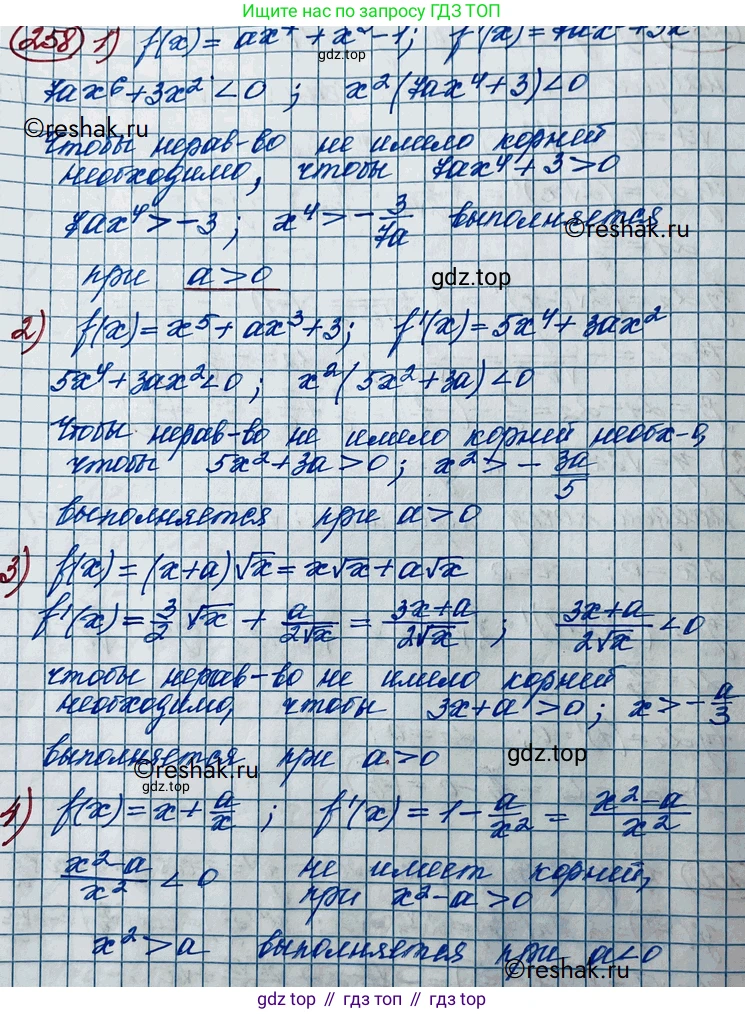 Ищите нас по запросу ГДЗ ТОП
258 1) f(x) = ax⁷ + x³ - 1; f'(x) = 7ax⁶ + 3x²
гдз.top
7ax⁶ + 3x² < 0 ; x²(7ax⁴ + 3) < 0
©reshak.ru
Чтобы нерав-во не имело корней
необходимо, чтобы 7ax⁴ + 3 > 0
7ax⁴ > -3 ; x⁴ > - 3/7a выполняется
©reshak.ru
при a > 0
gdz.top
2) f(x) = x⁵ + ax³ + 3; f'(x) = 5x⁴ + 3ax²
5x⁴ + 3ax² < 0 ; x²(5x² + 3a) < 0
Чтобы нерав-во не имело корней необх-о,
чтобы 5x² + 3a > 0 ; x² > - 3a/5
выполняется при a > 0
3) f(x) = (x + a)√x = x√x + a√x
f'(x) = 3/2 √x + a/2√x = 3x + a/2√x ; 3x + a/2√x < 0
чтобы нерав-во не имело корней
необходимо, чтобы 3x + a > 0 ; x > - a/3
выполняется при a > 0
gdz.top
©reshak.ru
4) f(x) = x + a/x ; f'(x) = 1 - a/x² = x² - a/x²
x² - a/x² < 0 не имеет корней,
при x² - a > 0
x² > a выполняется при a < 0
©reshak.ru
gdz.top // гдз.топ // gdz.top